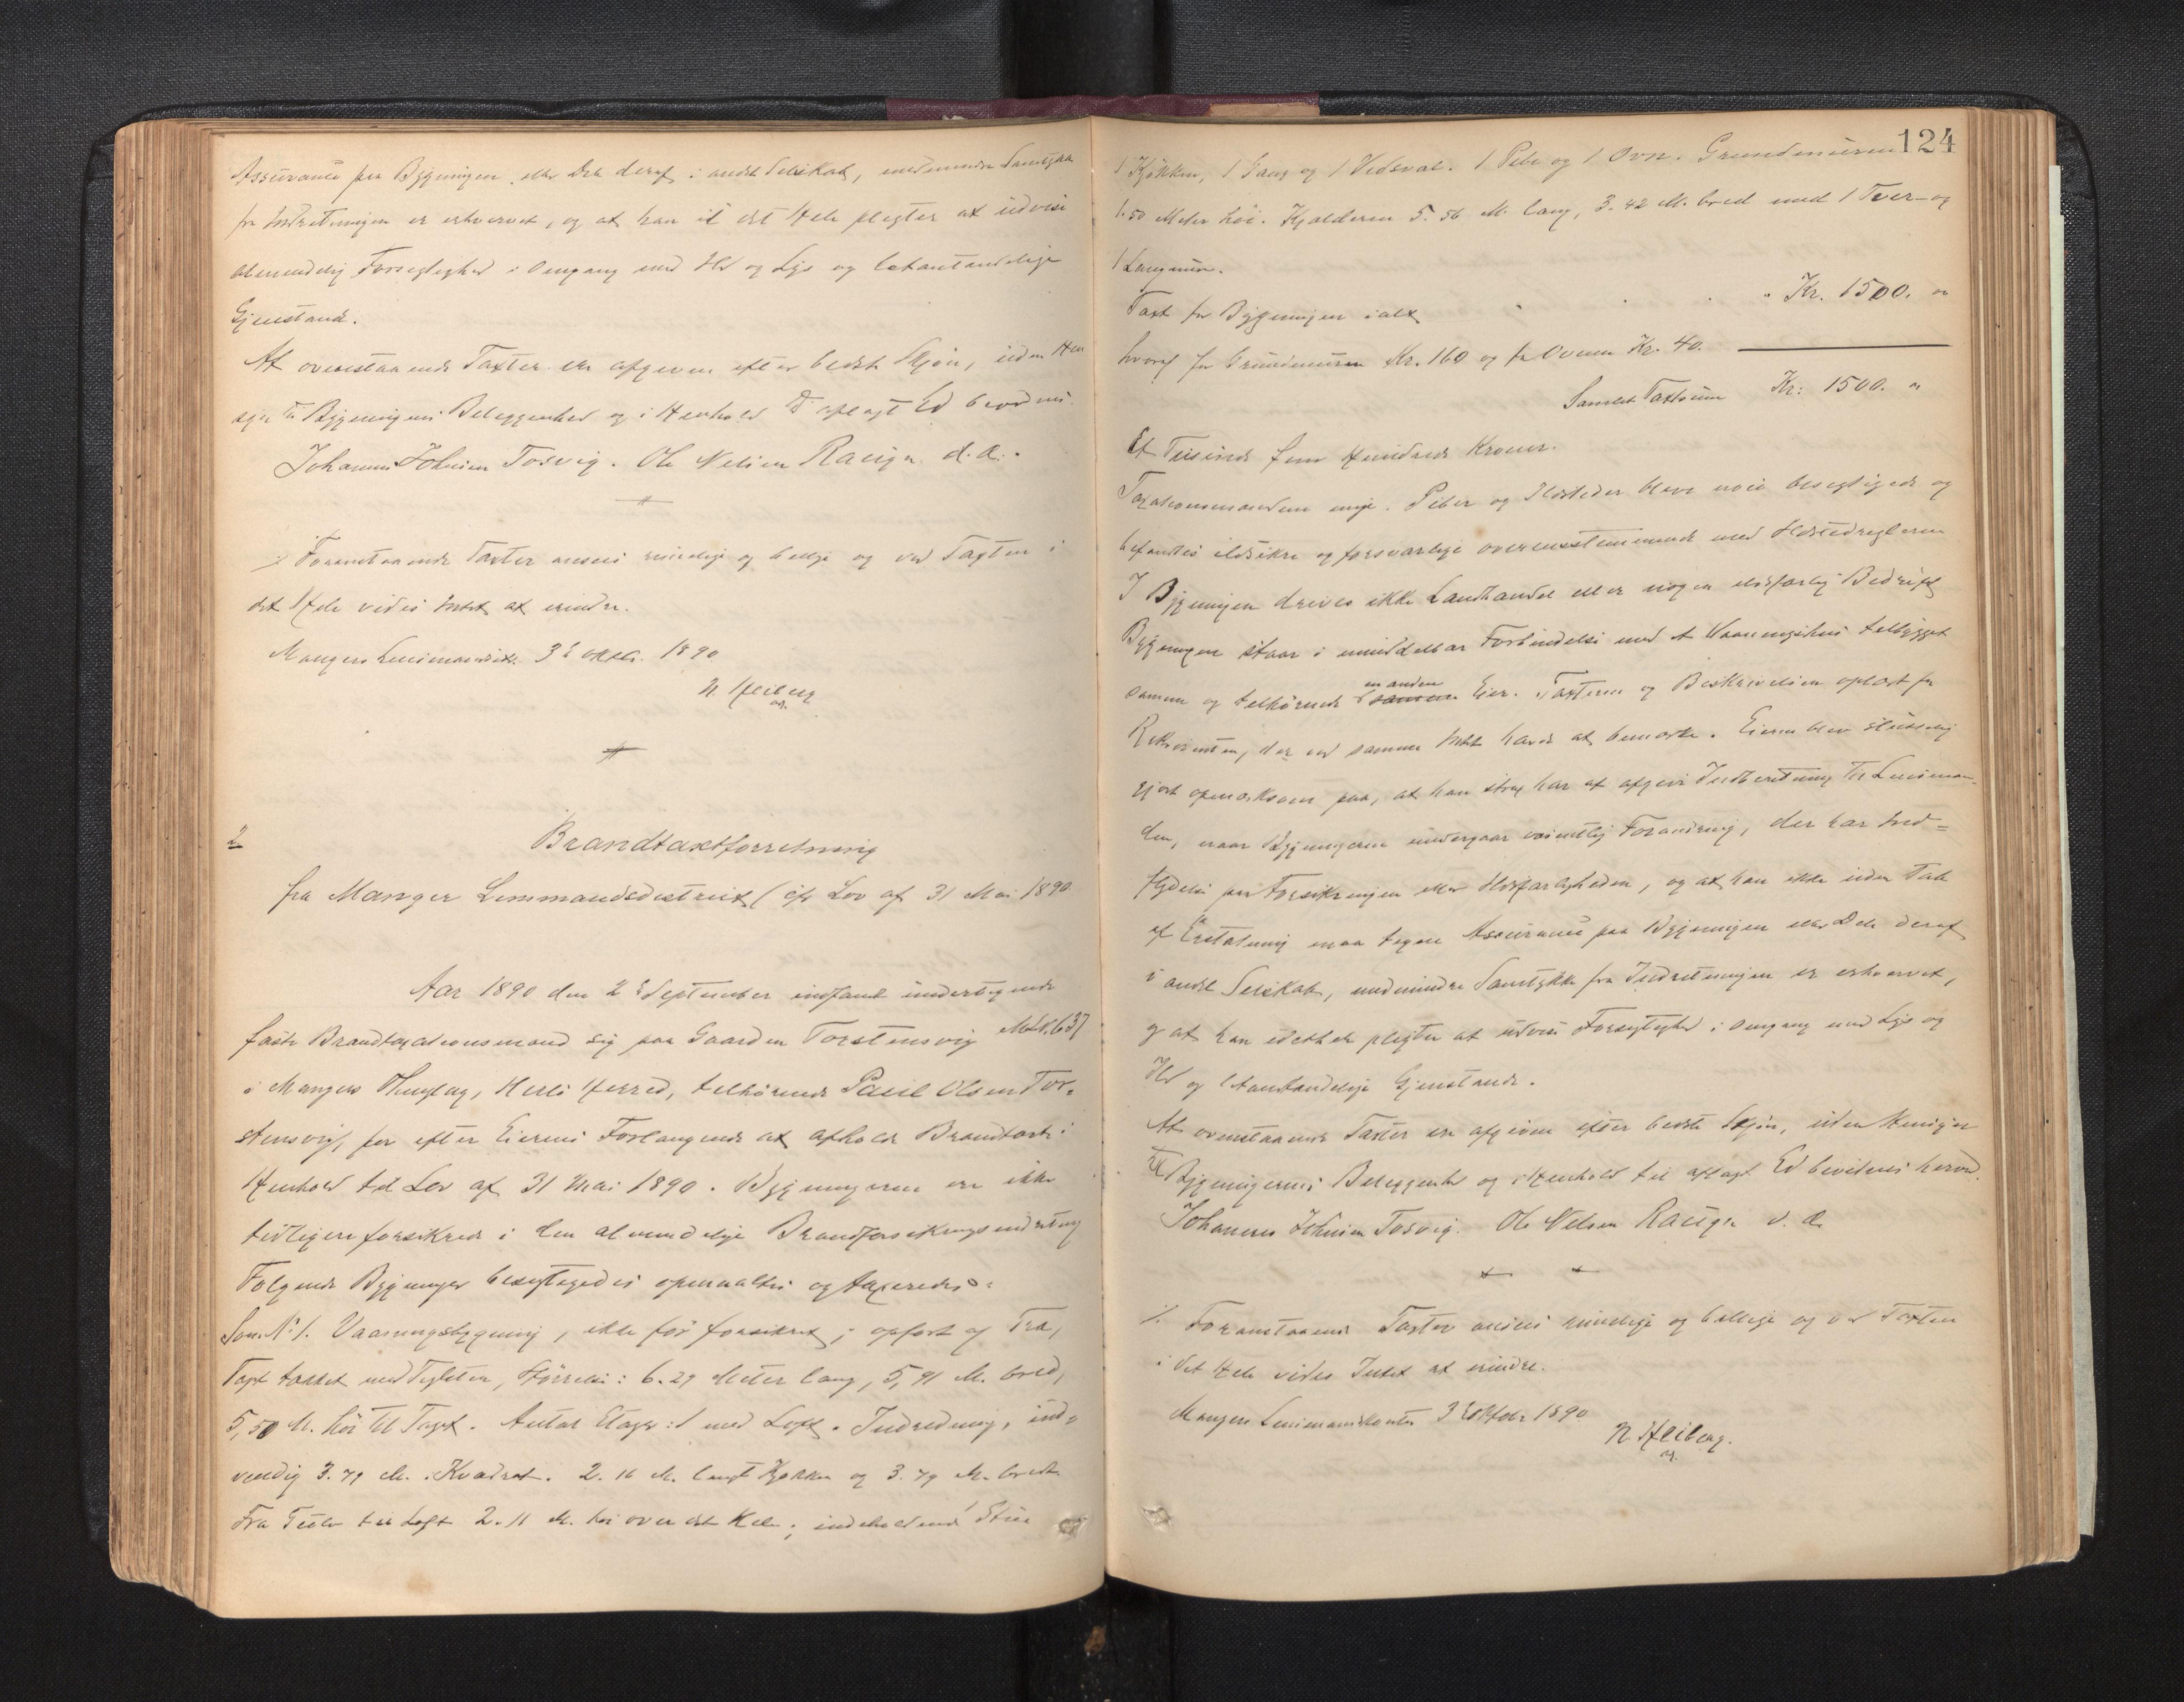 Assurance paa Bygningen eller Del deraf i andet Selskab, medmindre Samtykke
fra Indretningen er erhvervet, og at han i det Hele pligter at udvise
almindelig Forsigtighed i Omgang med Ild og Lys og letantændelige
Gjenstande.
At ovenstaaende Taxter ere afgivne efter bedste Skjøn, uden Hen
syn til Bygningens Beliggenhed og i Henhold til aflagt Ed bevidnes
Johannes Johnsen Tosvig. Ole Nelsen Raugn d.a.
Foranstaaende Taxter ansees rimelige og billige og ved Taxten i
det Hele vides Intet at erindre.
Mangers Lensmandsk. 3d Oktbr. 1890
N. Heiberg
2
Brandtaxtforretning
fra Manger Lensmandsdistrict (cfr Lov af 31 Mai 1890
Aar 1890 den 2d September indfandt undertegnede
faste Brandtaxationsmænd sig paa Gaarden Torstensvig
i Mangers Thinglag, Herlø Herred, tilhørende Paul Olsen Tor-
stensvig, for efter Eierens Forlangende at afholde Brandtaxt i
Henhold til Lov af 31 Mai 1890. Bygningerne ere ikke
tidligere forsikrede i den almindelige Brandforsikringsindretning
Følgende Bygninger besigtigedes opmaaltes og taxeredes:
Som No 1. Vaaningsbygning, ikke før forsikret; opført af Træ,
Taget tækket med Teglsten, Størrelse: 6.29 Meter lang, 5,91 M. bred,
5,50 M. høi til Taget. Antal Etager: 1 med Loft. Indredning, ind-
vendig 3.79 M. i Kvadrat. 2.16 M. langt Kjøkken og 3.79 M. bredt
Fra Gulv til Loft 2.11 M. høi over det Hele; indeholdende 1 Stue
124
1 Kjøkken, 1 Gang og 1 Vedsval. 1 Pibe og 1 Ovn. Grundmuren
1.50 Meter høi. Kjælderen 5.56 M. lang, 3.42 M. bred med 1 Tver- og
1 Langmur.
Taxt for Bygningen ialt Kr. 1500. "
hvoraf for Grundmuren Kr. 160 og for Ovnen Kr. 40.
Samlet Taxtsum Kr: 1500. "
Et Tusinde fem Hundrede Kroner.
Taxationsmændene enige. Piber og Ildsteder bleve nøie besigtigede og
befandtes ildsikre og forsvarlige overensstemmende med Ildstedreglerne
I Bygningen drives ikke Landhandel eller nogen ildsfarlig Bedrift
Bygningen staar i umiddelbar Forbindelse med et Vaaningshus tilbygget
samme og tilhørende en anden Eier. Taxterne og Beskrivelsen oplæst for
Rekvirenten, der ved samme Intet havde at bemærke. Eieren blev sluttelig
gjort opmærksom paa, at han strax har at afgive Indberetning til Lensman-
den, naar Bygningerne undergaar væsentlig Forandring, der har Ind-
flydelse paa Forsikringen eller Ildsfarligheden, og at han ikke uden Tab
af Erstatning maa tegne Assurance paa Bygningen eller Dele deraf
i andet Selskab, medmindre Samtykke fra Indretningen er erhvervet,
og at han idethele pligter at udvise Forsigtighed i Omgang med Lys og
Ild og letantændelige Gjenstande.
At ovenstaaende Taxter ere afgivne efter bedste Skjøn, uden Hensyn
til Bygningernes Beliggenhed og i Henhold til aflagt Ed bevidnes herved.
Johannes Johnsen Tosvig. Ole Nelsen Raugn d. a.
Foranstaaende Taxter ansees rimelige og billige og ved Taxten
i det Hele vides Intet at erindre.
Mangers Lensmandskontor 3d Oktbr 1890
N Heiberg.